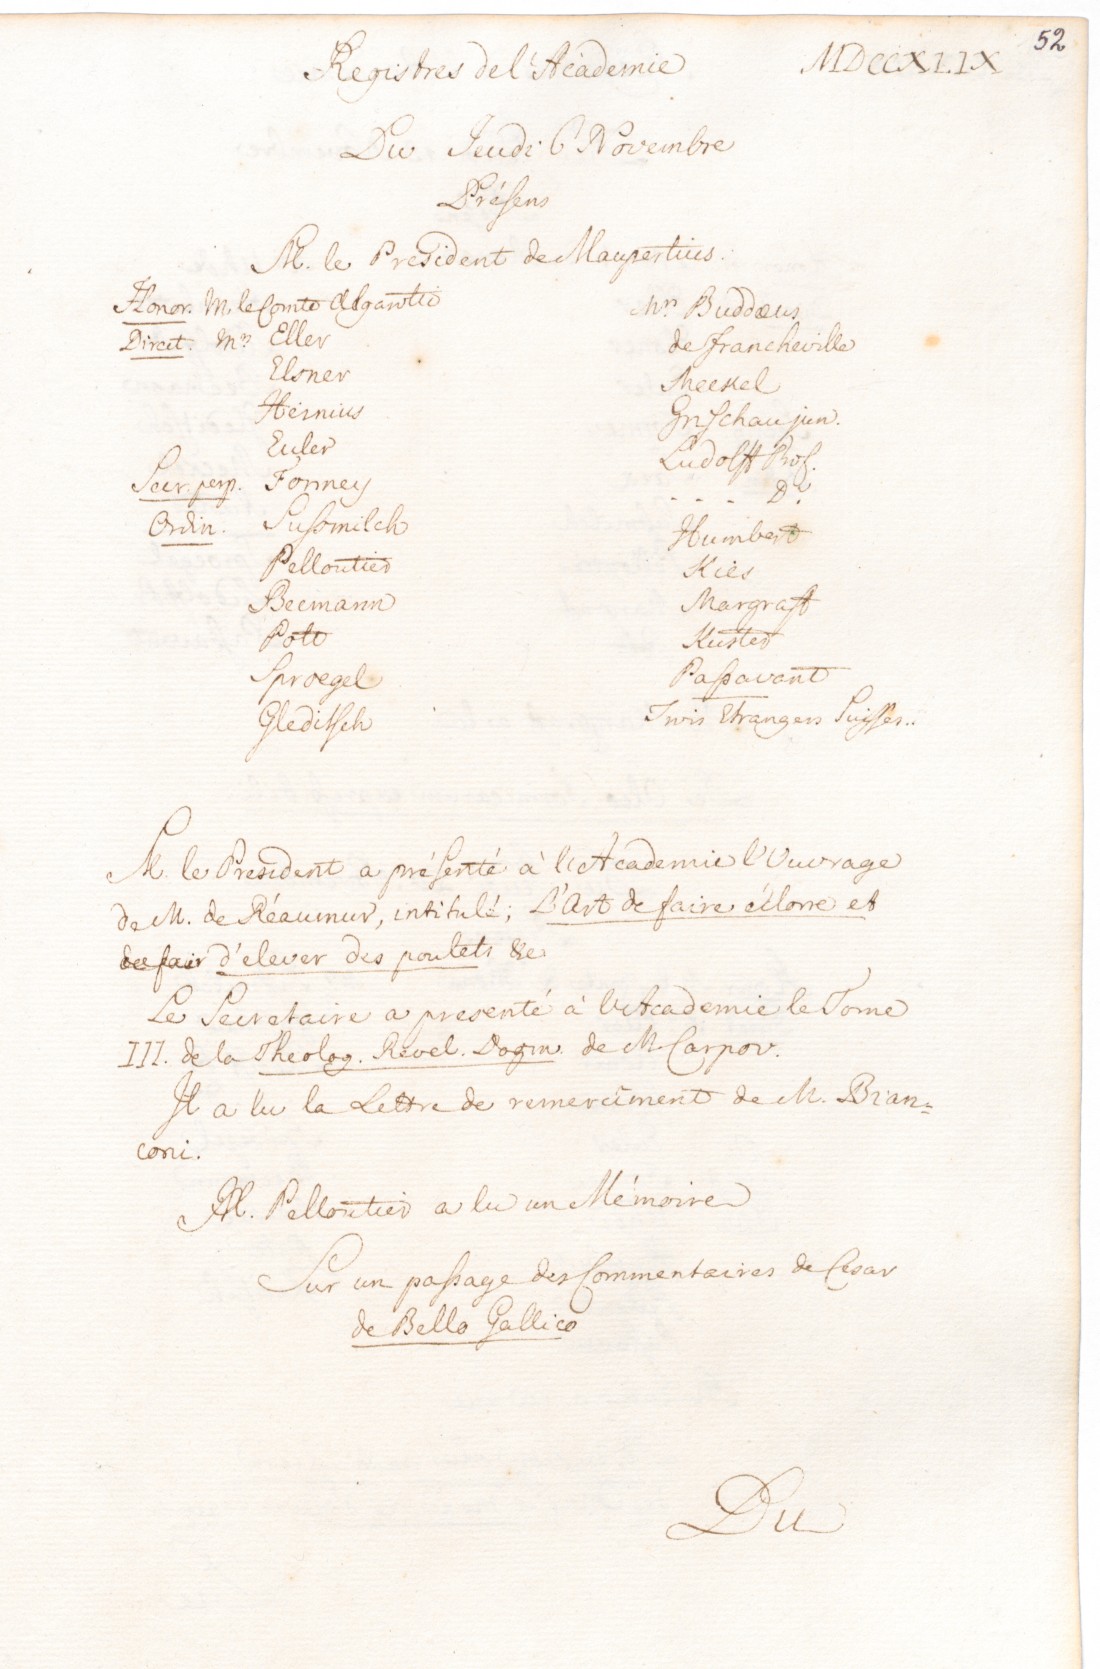 52
Registres de l'Académie MDCCXLIX
Du Jeudi 6 Novembre
Présens
M. le President de Maupertuis.
Honor. M. le Comte Algarotti
Direct. Mrs Eller
Elsner
Heinius
Euler
Secr. perp. Formey
Ordin. Sussmilch
Pelloutier
Becmann
Pott
Sproegel
Gleditsch
Mrs Buddæus
de Francheville
Meckel
Grischau jun.
Ludolff Prof.
- - - - Dr.
Humbert
Kies
Margraff
Kuster
Passavant
Trois Etrangers Suisses.
M. le President a présenté à l'Academie l'Ouvrage
de M. de Réaumur, intitulé; L'Art de faire éclorre et
d'elever des poulets &c
Le Secretaire a presenté à l'Academie le Tome
III. de la Theolog. Revel. Dogm. de M. Carpov.
Il a lu la Lettre de remerciment de M. Bian=
coni.
M. Pelloutier a lu un Mémoire
Sur un passage des Commentaires de César
de Bello Gallico
Du